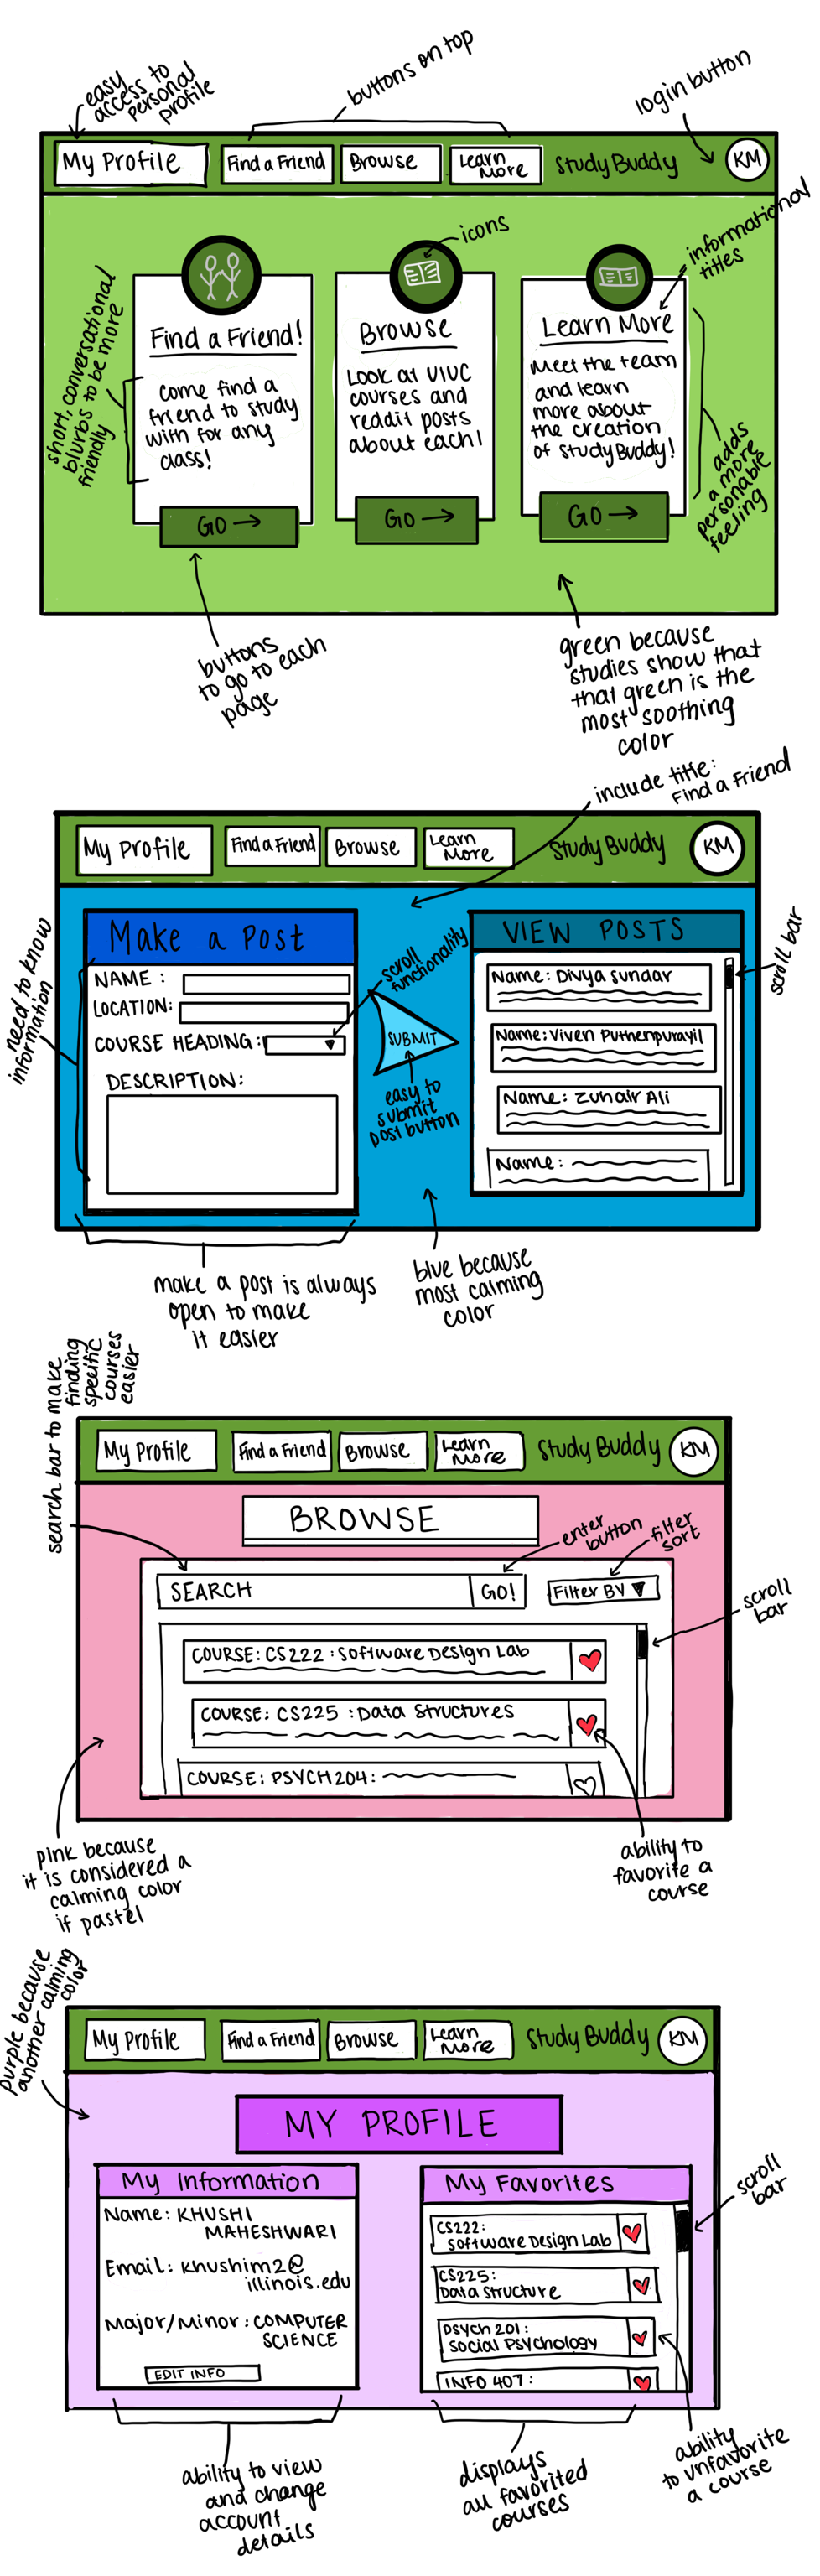 easy
access to
personal
profile
buttons on top
login button
My Profile
Find a Friend
Browse
Learn
More
Study Buddy
KM
icons
informational
titles
short, conversational
blurbs to be more
friendly
Find a Friend!
come find a
friend to study
with for any
class!
GO →
Browse
Look at UIUC
courses and
reddit posts
about each!
GO →
Learn More
Meet the team
and learn
more about
the creation
of StudyBuddy!
GO →
adds
a more
personable
feeling
buttons
to go to each
page
green because
studies show that
that green is the
most soothing
color
include title:
Find a Friend
My Profile
Find a Friend
Browse
Learn
More
Study Buddy
KM
need to know
information
Make a Post
NAME :
LOCATION:
COURSE HEADING:
DESCRIPTION:
scroll
functionality
SUBMIT
easy to
submit
post button
VIEW POSTS
Name: Divya Sundar
Name: Viven Puthenpurayil
Name: Zunair Ali
Name:
scroll bar
make a post is always
open to make
it easier
blue because
most calming
color
search bar to make
finding
specific
courses
easier
My Profile
Find a Friend
Browse
Learn
More
Study Buddy
KM
BROWSE
enter
button
filter
sort
SEARCH
GO!
Filter BY ▼
scroll
bar
COURSE: CS222 : Software Design Lab
COURSE: CS225 : Data Structures
COURSE: PSYCH204:
pink because
it is considered a
calming color
if pastel
ability to
favorite a
course
purple because
another calming
color
My Profile
Find a Friend
Browse
Learn
More
Study Buddy
KM
MY PROFILE
My Information
Name: KHUSHI
MAHESHWARI
Email: khushim2@
illinois.edu
Major/Minor: COMPUTER
SCIENCE
EDIT INFO
My Favorites
CS222:
Software Design Lab
CS225:
Data Structure
Psych 201:
Social Psychology
INFO 407:
scroll
bar
ability to view
and change
account
details
displays
all favorited
courses
ability
to unfavorite
a course